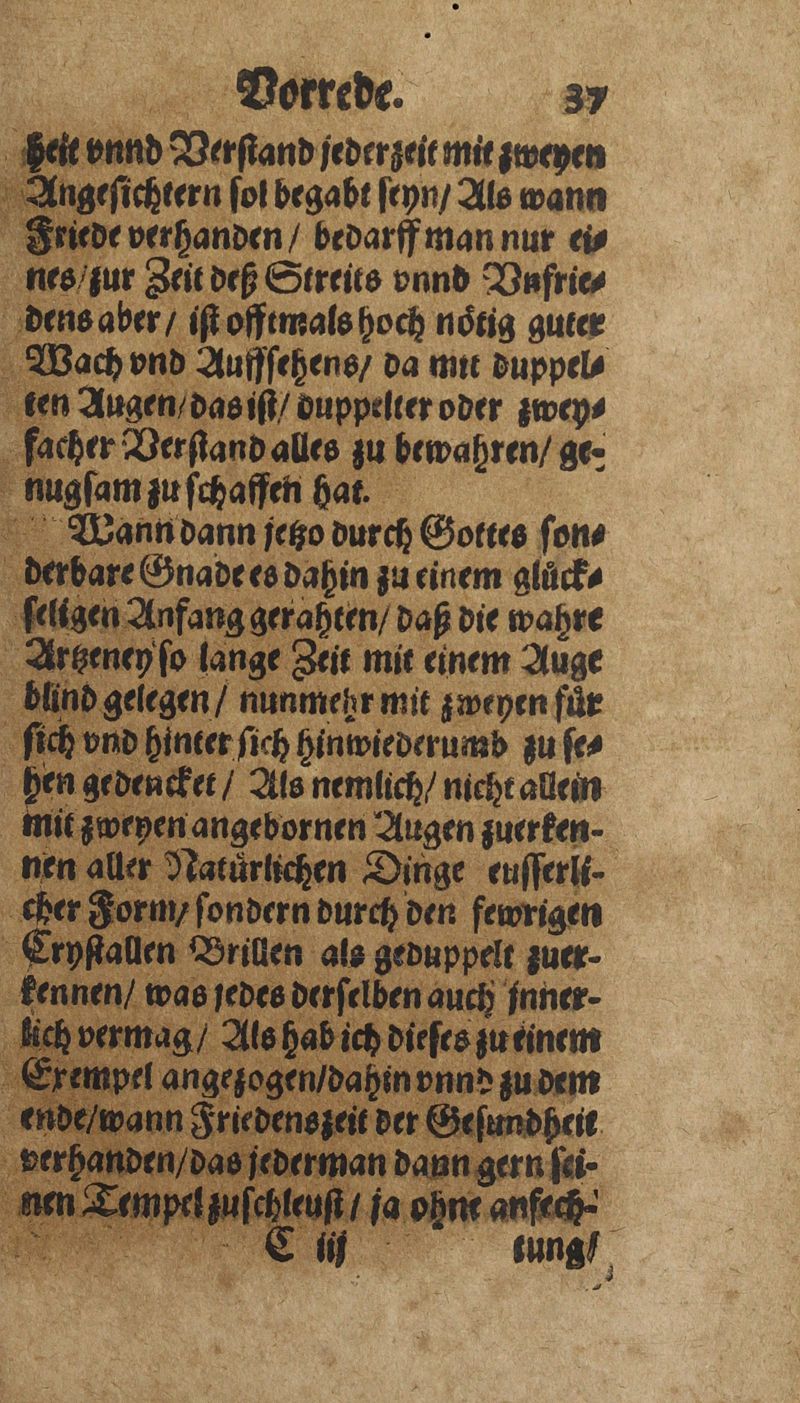 Vorrede. 37
heit vnnd Verstand jederzeit mit zweyen
Angesichtern sol begabt seyn/ Als wann
Friede verhanden / bedarff man nur ei⸗
nes/zur Zeit deß Streits vnnd Vnfrie⸗
dens aber / ist offtmals hoch nötig guter
Wach vnd Auffsehens/ da mit duppel⸗
ten Augen/das ist/ duppelter oder zwey⸗
facher Verstand alles zu bewahren/ ge-
nugsam zu schaffen hat.
Wann dann jetzo durch Gottes son⸗
derbare Gnade es dahin zu einem glück⸗
seligen Anfang gerahten/ daß die wahre
Artzeney so lange Zeit mit einem Auge
blind gelegen / nunmehr mit zweyen für
sich vnd hinter sich hinwiederumb zu se⸗
hen gedencket / Als nemlich/ nicht allein
mit zweyen angebornen Augen zuerken-
nen aller Natürlichen Dinge eusserli-
cher Form/ sondern durch den fewrigen
Crystallen Brillen als geduppelt zuer-
kennen/ was jedes derselben auch jnner-
lich vermag / Als hab ich dieses zu einem
Exempel angezogen/dahin vnnd zu dem
ende/wann Friedenszeit der Gesundheit
verhanden/das jederman dann gern sei-
nen Tempel zuschleust / ja ohne anfech-
C iij tung/